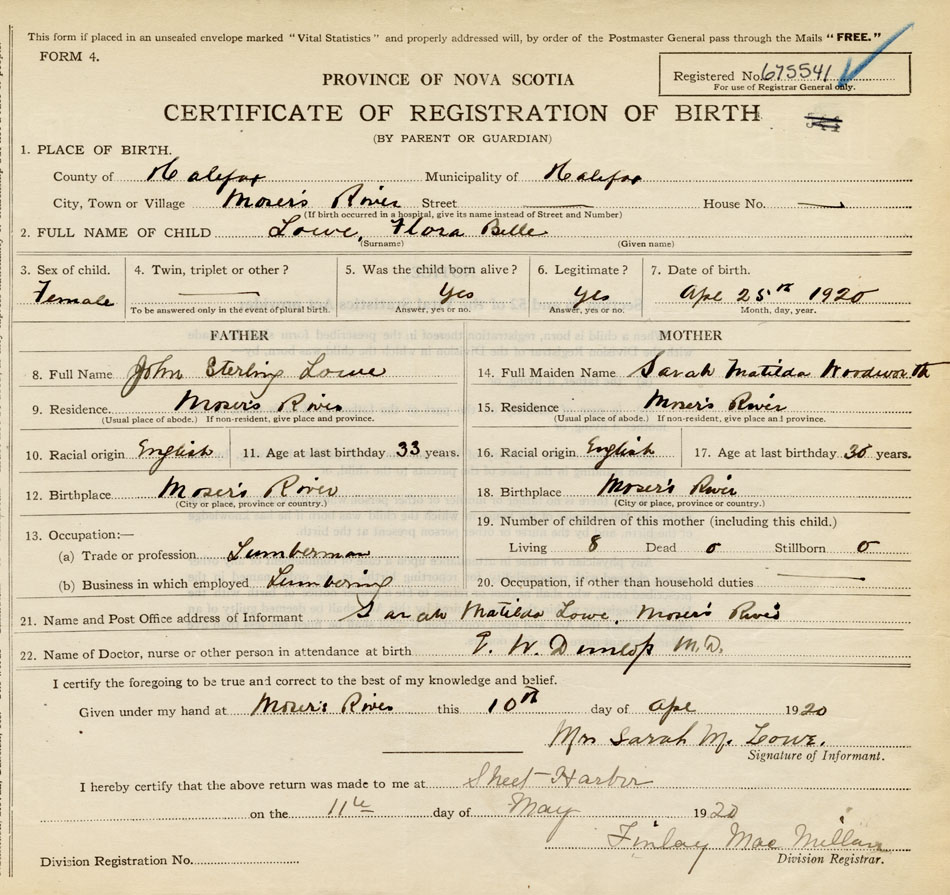 This form if placed in an unsealed envelope marked "Vital Statistics" and properly addressed will, by order of the Postmaster General pass through the Mails "FREE."
FORM 4.
Registered No. 675541
For use of Registrar General only.
PROVINCE OF NOVA SCOTIA
CERTIFICATE OF REGISTRATION OF BIRTH
(BY PARENT OR GUARDIAN)
1. PLACE OF BIRTH.
County of Halifax Municipality of Halifax
City, Town or Village Moser's River Street House No.
(If birth occurred in a hospital, give its name instead of Street and Number)
2. FULL NAME OF CHILD Lowe, Flora Belle
(Surname) (Given name)
3. Sex of child. 4. Twin, triplet or other? 5. Was the child born alive? 6. Legitimate? 7. Date of birth.
Female yes yes Ape 25th 1920
To be answered only in the event of plural birth. Answer, yes or no. Answer, yes or no. Month, day, year.
FATHER MOTHER
8. Full Name John Sterling Lowe 14. Full Maiden Name Sarah Matilda Woodworth
9. Residence. Moser's River 15. Residence Moser's River
(Usual place of abode.) If non-resident, give place and province. (Usual place of abode.) If non-resident, give place and province.
10. Racial origin English 11. Age at last birthday 33 years. 16. Racial origin English 17. Age at last birthday years.
12. Birthplace Moser's River 18. Birthplace Moser's River
(City or place, province or country.) (City or place, province or country.)
13. Occupation:— 19. Number of children of this mother (including this child.)
(a) Trade or profession Lumberman Living 8 Dead 0 Stillborn 0
(b) Business in which employed Lumbering 20. Occupation, if other than household duties
21. Name and Post Office address of Informant Sarah Matilda Lowe, Moser's River
22. Name of Doctor, nurse or other person in attendance at birth W. Dunlop M.D.
I certify the foregoing to be true and correct to the best of my knowledge and belief.
Given under my hand at Moser's River this 10th day of Ape 1920
Mrs Sarah M. Lowe.
Signature of Informant.
I hereby certify that the above return was made to me at Sheet Harbor
on the 11th day of May 1920
Finlay Mac Millan
Division Registrar.
Division Registration No.